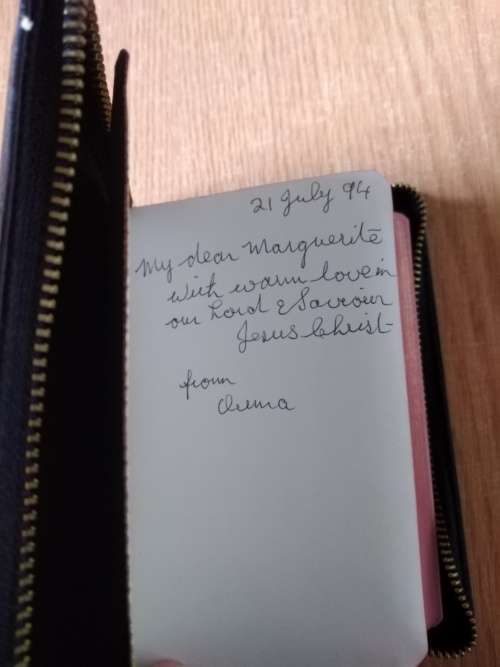 21 July 94
My dear Marguerite
With warm love in
our Lord & Saviour
Jesus Christ
from